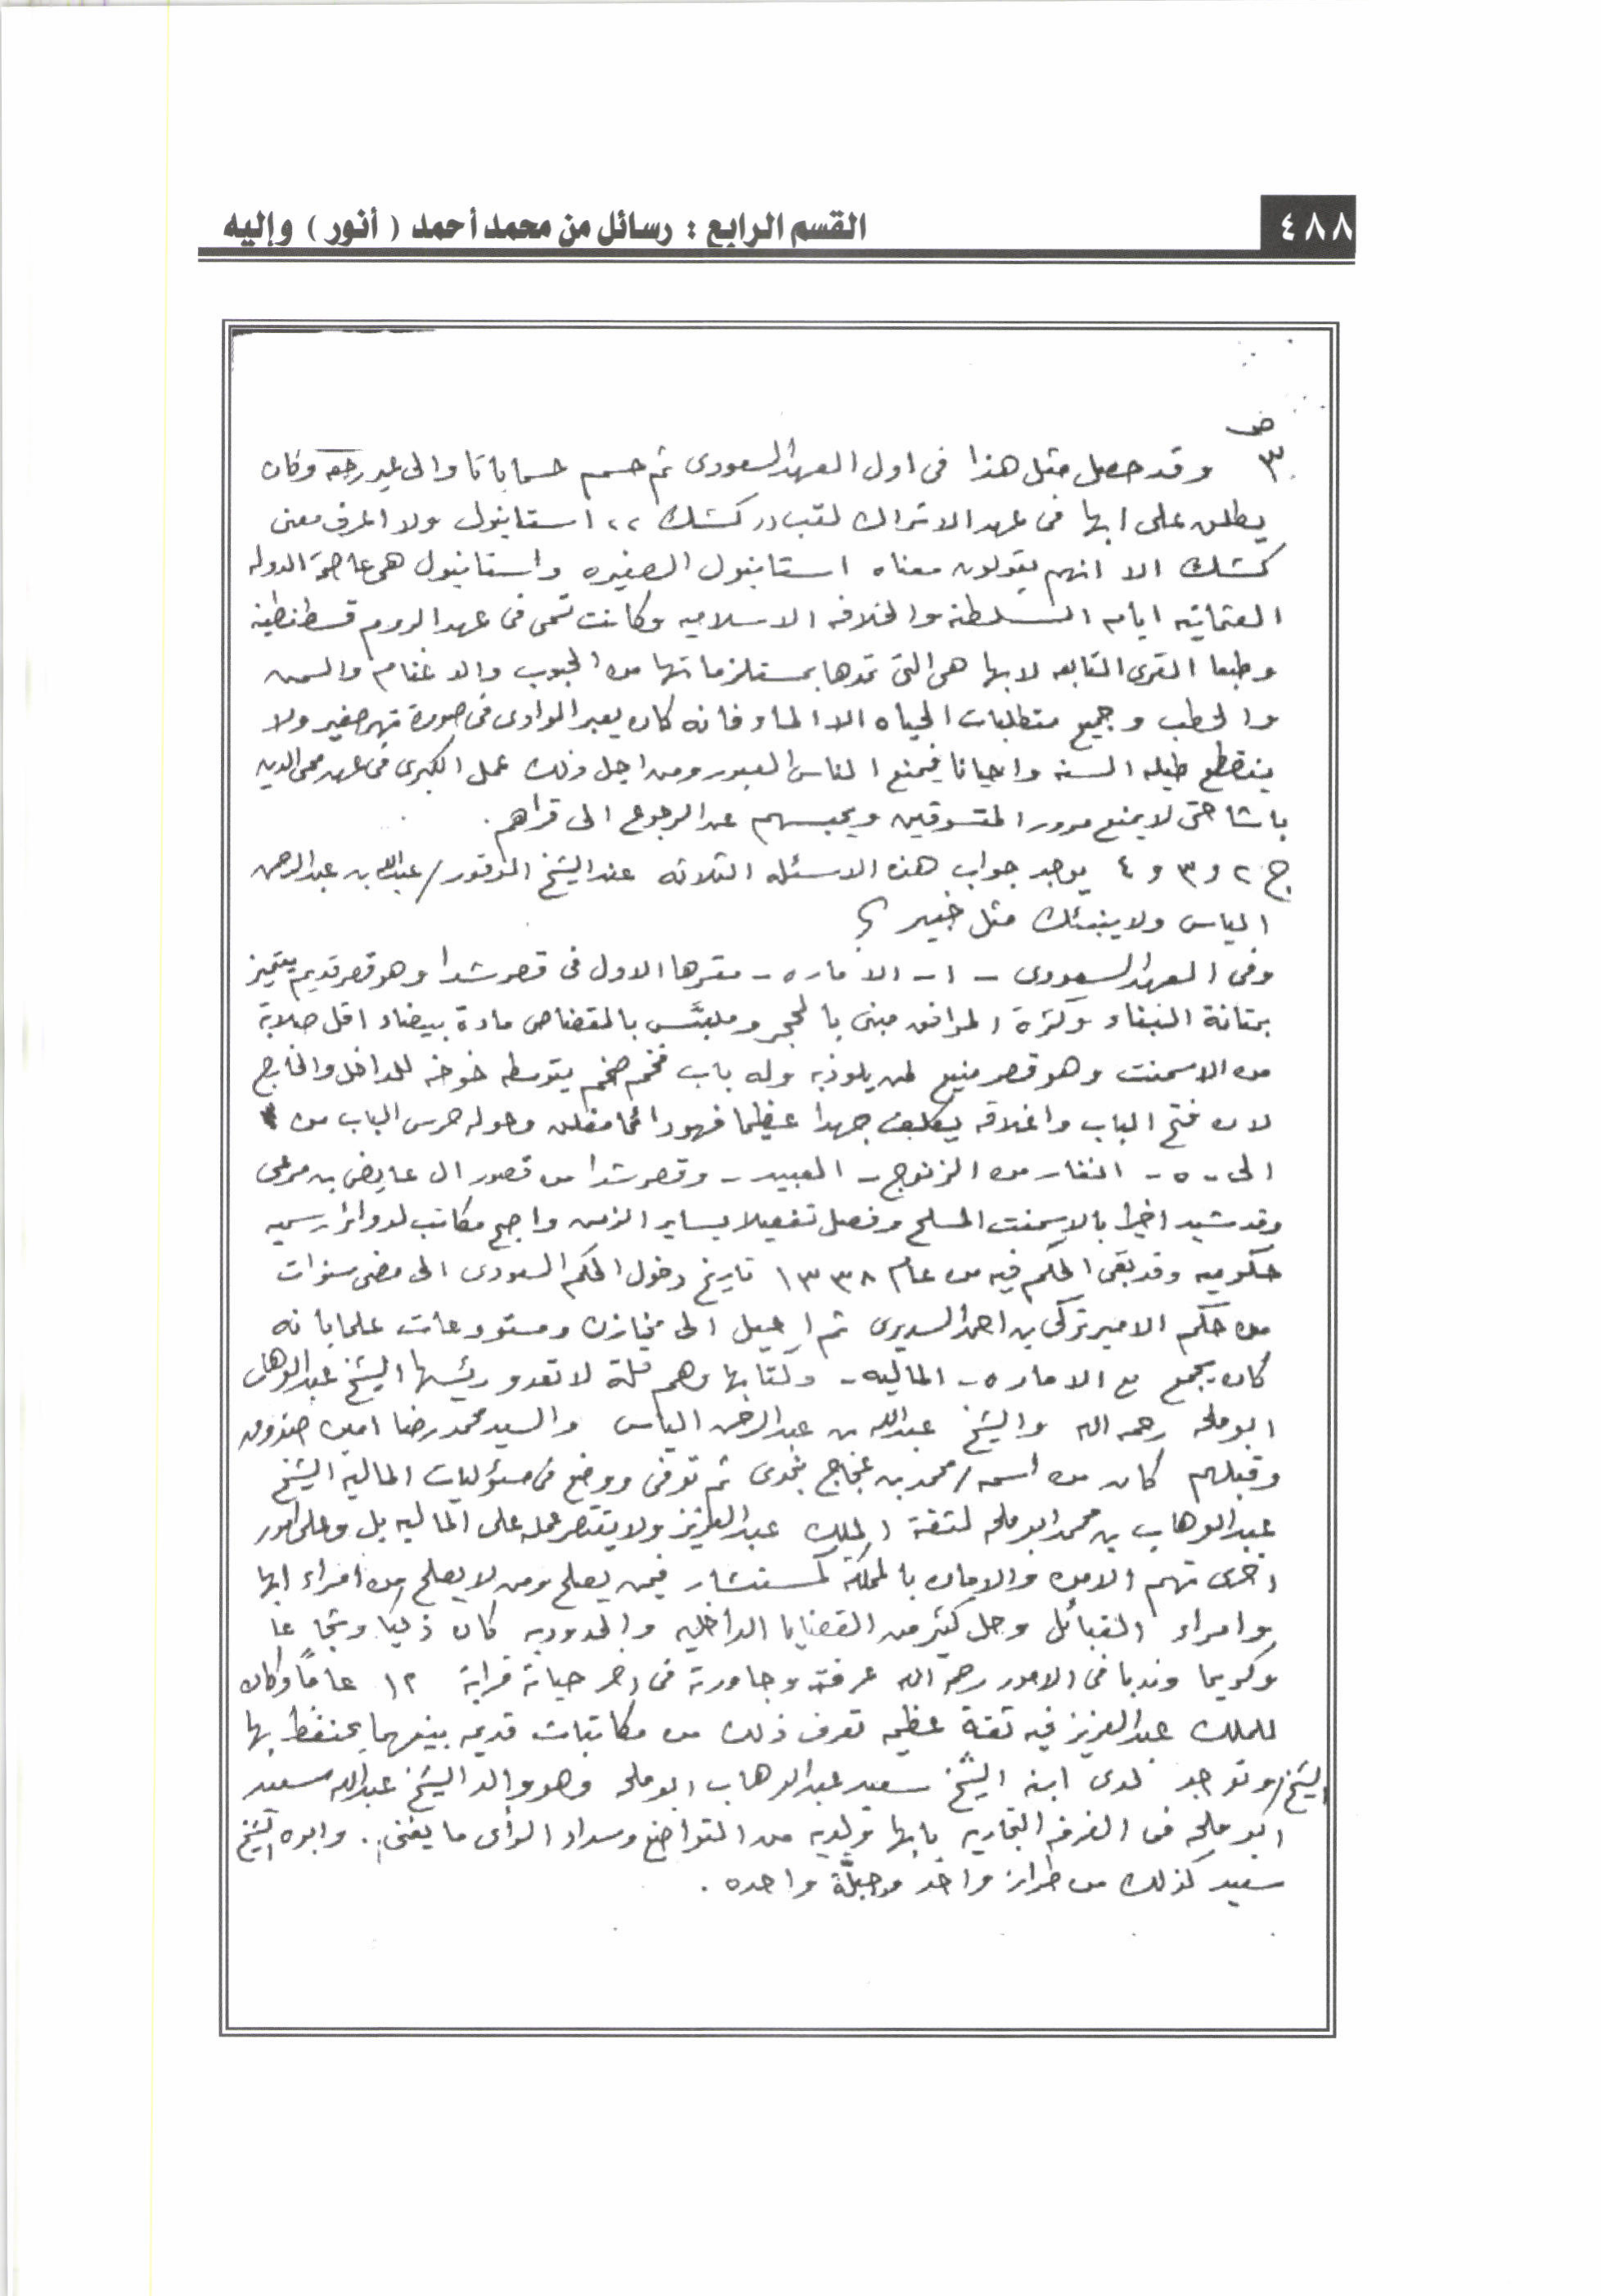 ٤٨٨
القسم الرابع : رسائل من محمد أحمد ( أنور ) وإليه
ص
٣
وقد حصل مثل هذا فى اول العهد السعودى ثم حسم حسما باتا والى غير رجعه وكان
يطلق على ابها فى عهد الاتراك لقب (( كشك )) استانبول ولا اعرف معنى
كشك الا انهم يقولون معناه استانبول الصغيره واستانبول هى عاصمة الدوله
العثمانيه ايام السلطنه والخلافه الاسلاميه وكانت تسمى فى عهد الروم قسطنطينه
وطبعا القرى التابعه لابها هى التى تمدها بمستلزماتها من الحبوب والاغنام والسمن
والحطب وجميع متطلبات الحياه الا الماء فانه كان يعبر الوادى فى صورة نهر صغير ولا
ينقطع طيله السنه واحيانا فيمنع الناس العبور ومن اجل ذلك عمل الكبرى فى عهد محى الدين
باشا حتى لا يمنع مرور المتسوقين ويحبسهم عن الرجوع الى قراهم .
ج ٢ و ٣ و ٤ يوجد جواب هذه الاسئله الثلاثه عند الشيخ الوقور / عبدالله بن عبدالرحمن
الياس ولا ينبئك مثل خبير ؟
وفى العهد السعودى - ١ - الاماره - مقرها الاول فى قصر شدا وهو قصر قديم يتميز
بمتانة البناء وكثرة المرافق مبنى بالحجر وملبّس بالمقضاض مادة بيضاء اقل صلابة
من الاسمنت وهو قصر منيع لمن يلوذ به وله باب فخم ضخم يتوسطه خوخه للداخل والخارج
لان فتح الباب واغلاقه يكلف جهدا عظيما فهو دائما مغلق وحوله حرس الباب من
الى - ٥ - انفار من الزنوج - العبيد - وقصر شدا من قصور ال عايض بن مرعى
وقد شيد اخيرا بالاسمنت المسلح وفصل تفصيلا يساير الزمن واصبح مكاتب لدوائر رسميه
حكوميه وقد بقى الحكم فيه من عام ١٣٣٨ تاريخ دخول الحكم السعودى الى مضى سنوات
من حكم الامير تركى بن احمد السديرى ثم احيل الى مخازن ومستودعات علما بانه
كان يجمع مع الاماره - الماليه - وكتابها وهم قلة لا تعدو رئيسها الشيخ عبدالوهاب
ابو ملحه رحمه الله والشيخ عبدالله بن عبدالرحمن الياس والسيد محمد رضا امين صندوق
وقبلهم كان من اسمه / محمد بن عجاج نجدى ثم توفى ووضع فى مسؤليات المالية الشيخ
عبدالوهاب بن محمد ابو ملحه لثقة الملك عبدالعزيز ولا يقتصر عمله على الماليه بل وعلى امور
اخرى تهم الامن والامان بالمملكة كمستشار فيمن يصلح ومن لا يصلح من امراء ابها
وامراء القبائل وحل كثير من القضايا الداخليه والحدوديه كان ذكيا وشجاعا
وكريما وندبا فى الامور رحمه الله عرفته وجاورته فى اخر حياته قرابة ١٢ عاماً وكان
للملك عبدالعزيز فيه ثقة عظيمه تعرف ذلك من مكاتبات قديمه بينهما يحتفظ بها
الشيخ / وتوجد لدى ابنه الشيخ سعيد عبدالوهاب ابو ملحه وهو والد الشيخ عبدالله سعيد
ابو ملحه فى الغرفه التجاريه بابها ولديه من التواضع وسداد الرأى ما يغنى . وابوه الشيخ
سعيد كذلك من طراز واحد وجبلّة واحده .